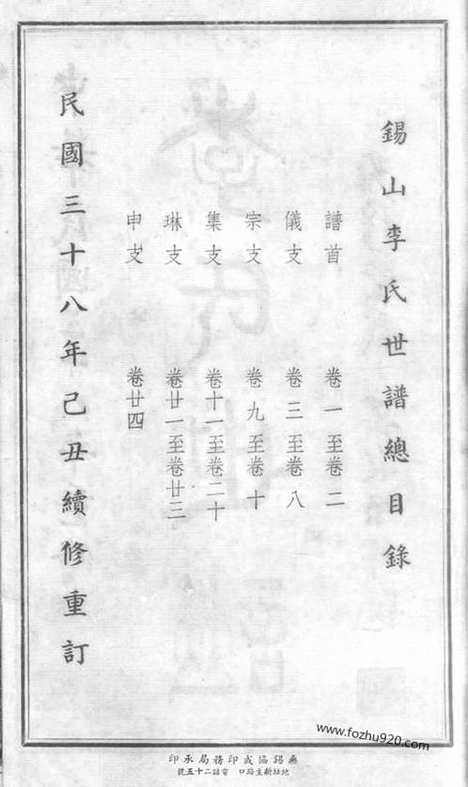 錫山李氏世譜總目錄
譜首 卷一至卷二
儀支 卷三至卷八
宗支 卷九至卷十
集支 卷十一至卷二十
琳支 卷廿一至卷廿三
申支 卷廿四
民國三十八年己丑續修重訂
無錫協成印務局承印
地址新生路口 電話二十五號
www.fozhu920.com